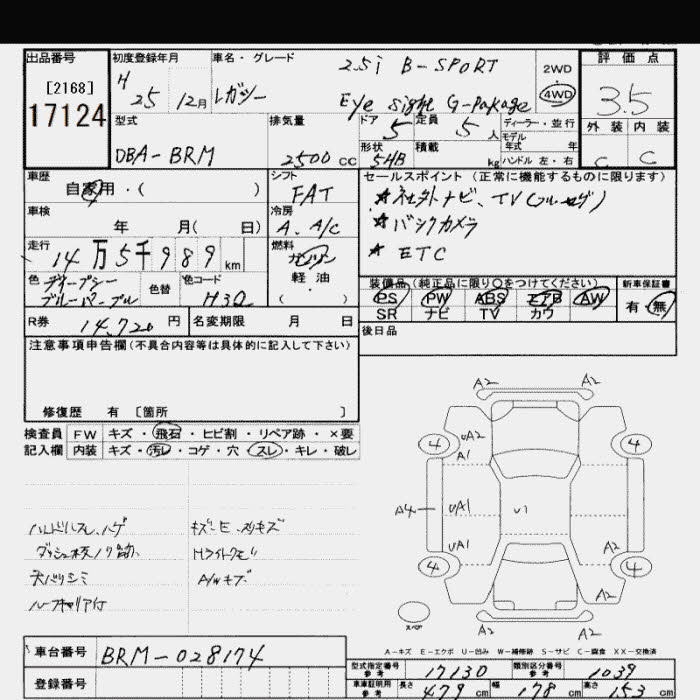 出品番号 初度登録年月 車名・グレード 2.5i B-SPORT 2WD 評価点
[2168] H 25 12月 レガシー Eye sight G-Pakage 4WD 3.5
17124 型式 排気量 ドア 5 定員 5 人 ディーラー・並行 外装 内装
モデル年式 年
DBA-BRM 2500 CC 形状 5HB 積載 kg ハンドル 左・右 C C
車歴 シフト セールスポイント (正常に機能するものに限ります)
自家用・( ) FAT
車検 冷房 ★社外ナビ、TV
年 月( 日) A. A/C ★バックカメラ
走行 燃料 ★ETC
14万5千989km ガソリン
色 ディープシー 色替 色コード 軽油 装備品 (純正品に限り○をつけてください) 新車保証書
ブルーパール H3Q ( ) PS PW ABS エアB AW 有・無
SR ナビ TV カワ
R券 14,720円 名変期限 月 日 後日品
注意事項申告欄(不具合内容等は具体的に記入して下さい)
修復歴 有 [箇所 ]
検査員 FW キズ・飛石・ヒビ割・リペア跡・×要
記入欄 内装 キズ・汚レ・コゲ・穴・スレ・キレ・破レ
A2 A2
4 UA2 4
A1
A4 UA1 U1
UA1 A2
4 4
A2
スペア A2 A2
ハンドルスレ、ハゲ
天バリシミ A/Wキズ
ルーフキャリア付
A-キズ E-エクボ U-凹み W-補修跡 S-サビ C-腐食 XX-交換済
車台番号 BRM-028174
型式指定番号 参考 17130 類別区分番号 参考 1039
登録番号 車庫証明用 参考 長さ 479 cm 幅 178 cm 高さ 153 cm